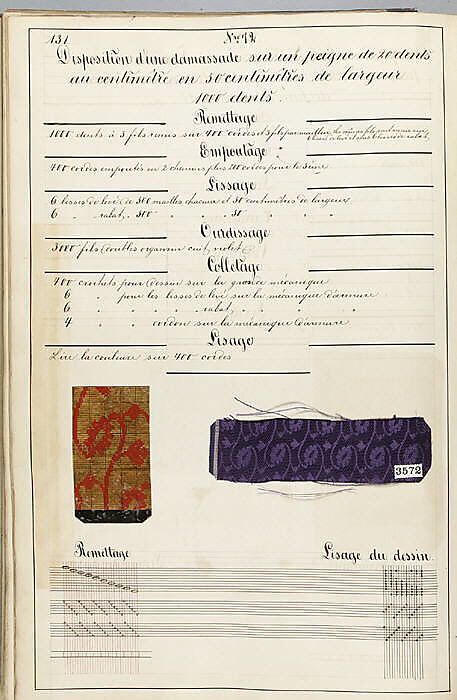 131
No. 72
Disposition d'une damassade sur un peigne de 20 dents
au centimètre en 50 centimètres de largeur
1000 dents.
Remettage
1000 dents à 3 fils remis sur 400 cordes et
Empoutage
400 cordes empoutés en 2 chemins plus 20 cordes pour le
Lissage
6 lisses de levé de 500 mailles chacune et 50 centimètres de largeur
6 " rabat, 500 " " 50 " "
Ourdissage
3000 fils doubles organsin cuit, violet
Colletage
400 crochets pour dessin sur la grande mécanique
6 " pour les lisses de levé sur la mécanique d'armure
6 " " " rabat, " " " "
4 " " cordon sur la mécanique d'armure
Lisage
Lire la couleur sur 400 cordes
3572
Remettage
Lisage du dessin